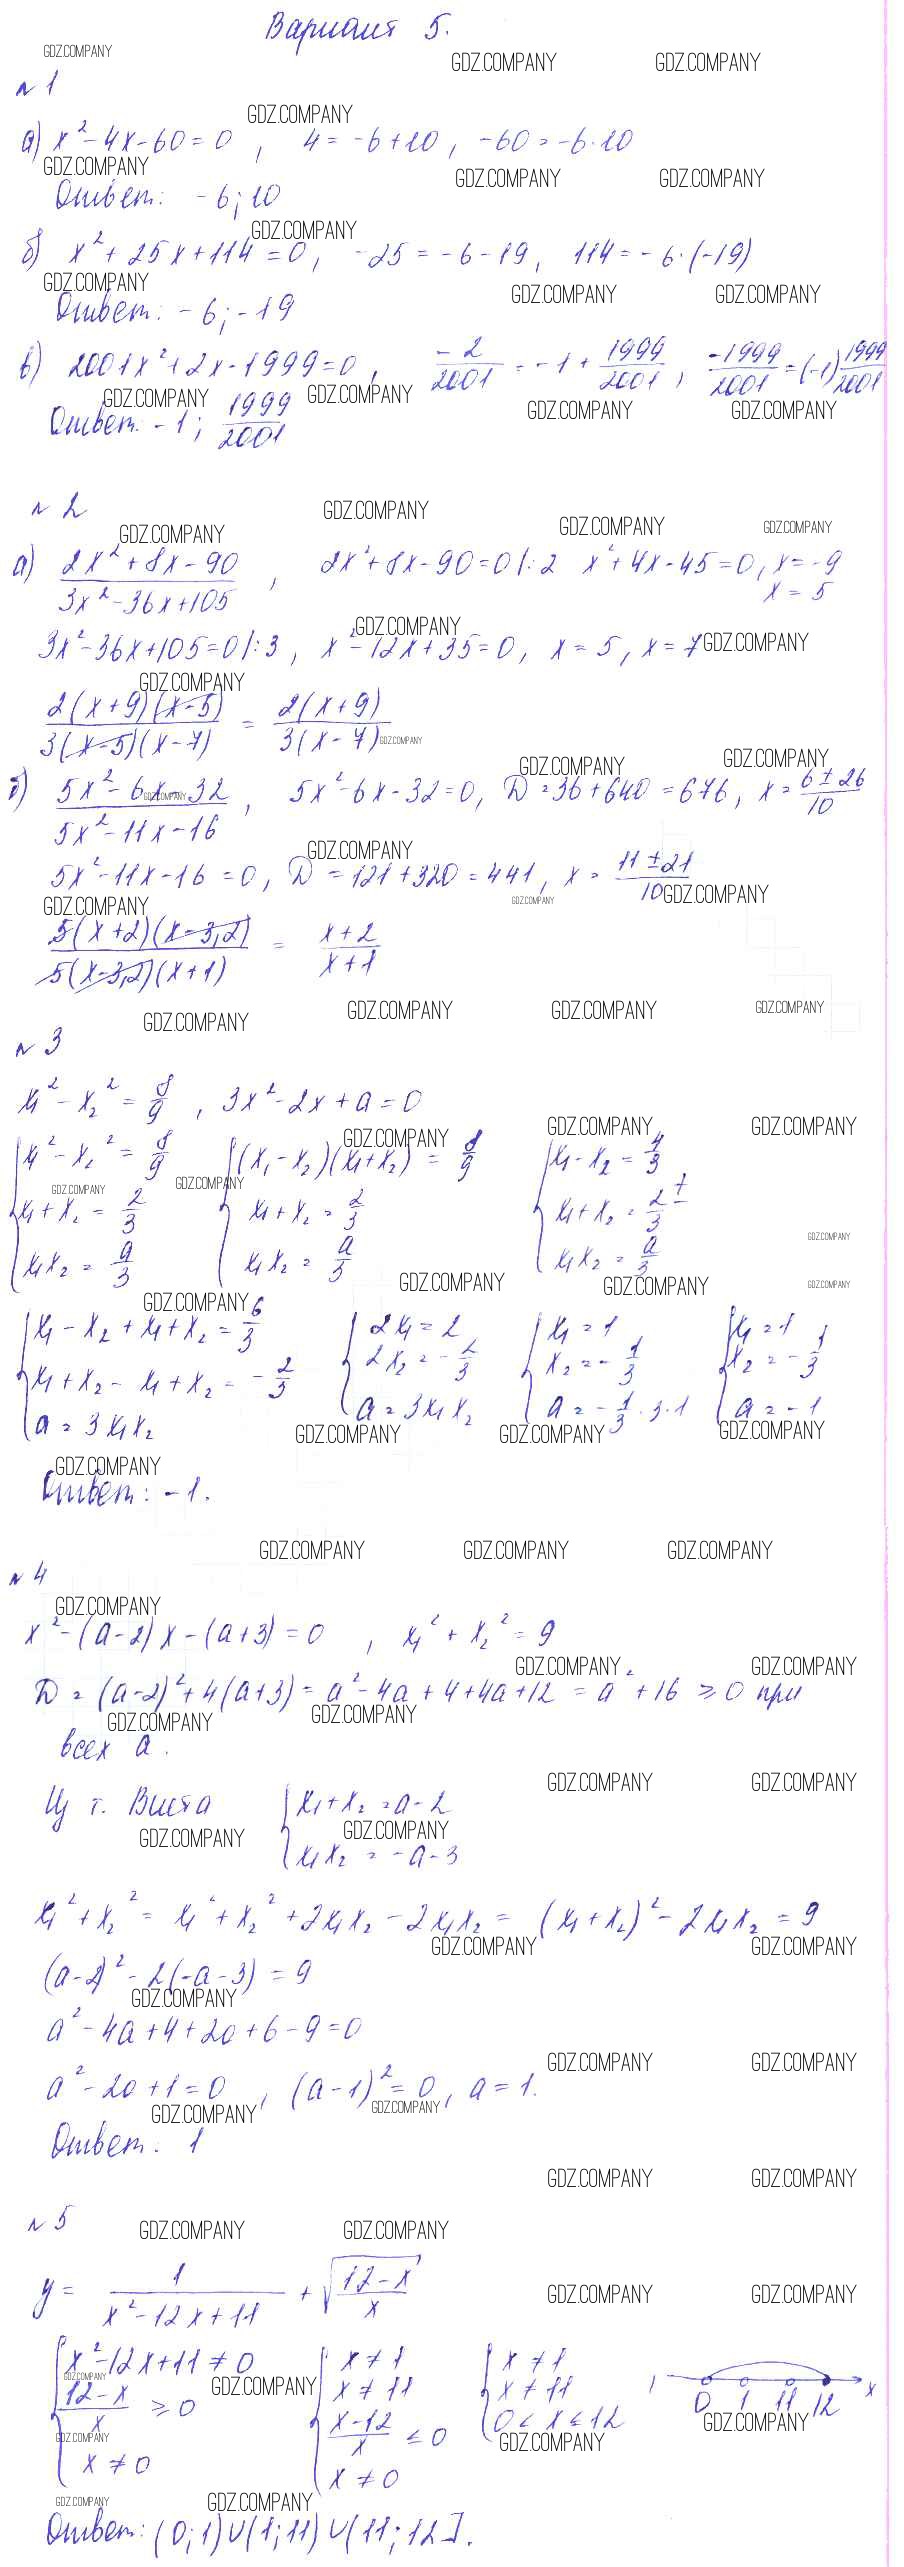 Вариант 5.
№ 1
а) x² - 4x - 60 = 0, 4 = -6 + 10, -60 = -6 · 10
Ответ: -6; 10
б) x² + 25x + 114 = 0, -25 = -6 - 19, 114 = -6 · (-19)
Ответ: -6; -19
в) 2001x² + 2x - 1999 = 0, -2/2001 = -1 + 1999/2001, -1999/2001 = (-1) 1999/2001
Ответ: -1; 1999/2001
№ 2
а) (2x² + 8x - 90)/(3x² - 36x + 105), 2x² + 8x - 90 = 0 |:2 x² + 4x - 45 = 0, x = -9
x = 5
3x² - 36x + 105 = 0 |:3, x² - 12x + 35 = 0, x = 5, x = 7
2(x+9)(x-5)/3(x-5)(x-7) = 2(x+9)/3(x-7)
б) (5x² - 6x - 32)/(5x² - 11x - 16), 5x² - 6x - 32 = 0, D = 36 + 640 = 676, x = (6 ± 26)/10
5x² - 11x - 16 = 0, D = 121 + 320 = 441, x = (11 ± 21)/10
5(x+2)(x-3,2)/5(x-3,2)(x+1) = (x+2)/(x+1)
№ 3
x₁² - x₂² = 8/9, 3x² - 2x + a = 0
{x₁² - x₂² = 8/9 {(x₁ - x₂)(x₁ + x₂) = 8/9 {x₁ - x₂ = 4/3
x₁ + x₂ = 2/3 x₁ + x₂ = 2/3 x₁ + x₂ = 2/3 ±
x₁x₂ = a/3 x₁x₂ = a/3 x₁x₂ = a/3
{x₁ - x₂ + x₁ + x₂ = 6/3 {2x₁ = 2 {x₁ = 1 {x₁ = 1
x₁ + x₂ - x₁ + x₂ = -2/3 2x₂ = -2/3 x₂ = -1/3 x₂ = -1/3
a = 3x₁x₂ a = 3x₁x₂ a = -1/3 · 3 · 1 a = -1
Ответ: -1.
№ 4
x² - (a-2)x - (a+3) = 0, x₁² + x₂² = 9
D = (a-2)² + 4(a+3) = a² - 4a + 4 + 4a + 12 = a² + 16 ⩾ 0 при
всех a.
Из т. Виета {x₁ + x₂ = a - 2
x₁x₂ = -a - 3
x₁² + x₂² = x₁² + x₂² + 2x₁x₂ - 2x₁x₂ = (x₁ + x₂)² - 2x₁x₂ = 9
(a-2)² - 2(-a-3) = 9
a² - 4a + 4 + 2a + 6 - 9 = 0
a² - 2a + 1 = 0, (a-1)² = 0, a = 1.
Ответ: 1
№ 5
y = 1/(x² - 12x + 11) + √((12-x)/x)
{x² - 12x + 11 ≠ 0 {x ≠ 1 {x ≠ 1
(12-x)/x ⩾ 0 x ≠ 11 x ≠ 11
x ≠ 0 (x-12)/x ⩽ 0 0 < x ⩽ 12
x ≠ 0
0 1 11 12 x
Ответ: (0; 1) ∪ (1; 11) ∪ (11; 12].
GDZ.COMPANY